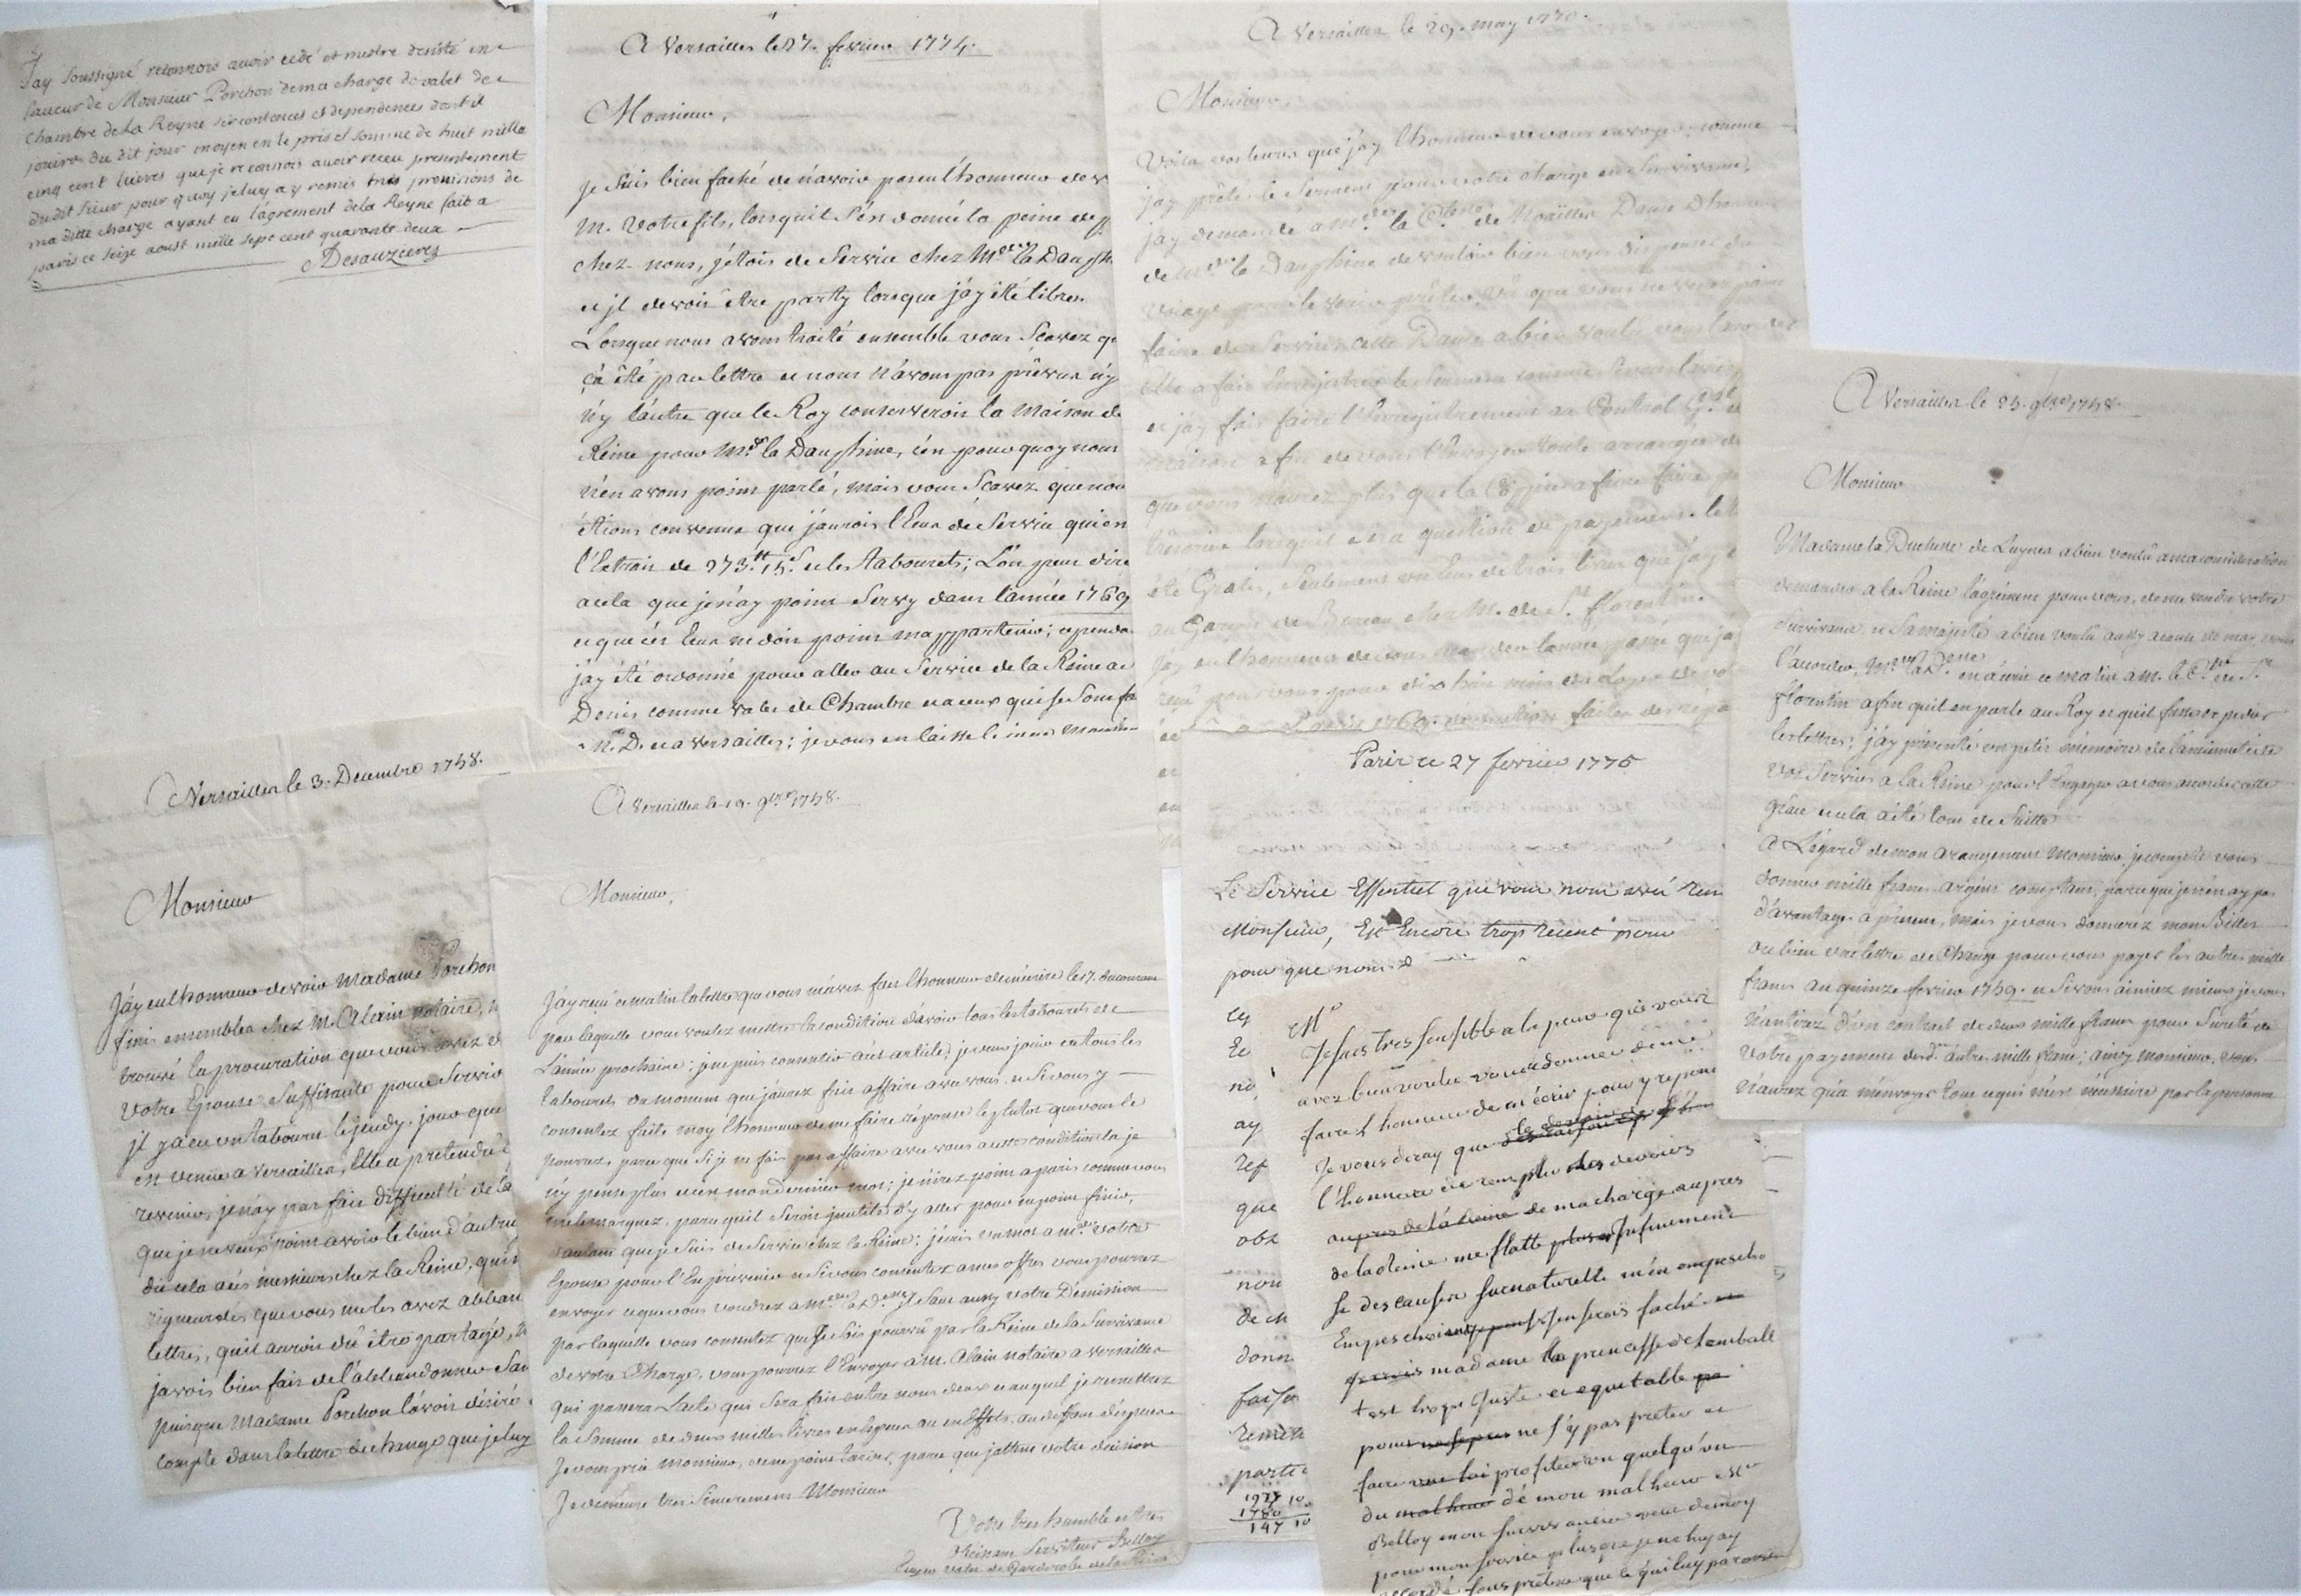 Jay Soussigné reconnois avoir cedé et mestre desisté en
faveur de Monsieur Porchon dema charge de valet de
chambre dela Reyne circontances et dependences dont il
jouira du dit jour moyen en le pris et somme de huit mille
cinq cent livres que je reconnois avoir receu presentement
dudit sieur pour quoy jeluy ay remis mes provisions de
ma ditte charge ayant eu l'agrement dela Reyne fait a
paris ce seize aoust mille sept cent quarante deux
Desauzieres
A Versailles le 27. fevrier 1774.
Monsieur,
je suis bien faché de n'avoir pas eu l'honneur de v
M. Votre fils, lorsqu'il s'en donné la peine de p
chez nous, j'étois de Service chez Mde la Dauph
et jl devoit être party lorsque j'ay été libre.
Lorsque nous avons traité ensemble vous Scavez q
ça été par lettre et nous n'avons pas prévue n'y
n'y l'autre que le Roy conserveroit la Maison de
Reine pour Mde la Dauphine, c'en pourquoy nous
n'en avons point parlé, mais vous Scavez que nou
étions convenus que j'aurois l'Eux de Service qui en
l'Extrait de 273.tt 15.s et les tabourets; L'on peut dire
a cela que je n'ay point Servy dans l'année 1769
et que cet Eux ne doit point m'appartenir; cependa
j'ay été ordonné pour aller au Service de la Reine a
Denis comme valet de Chambre et a ceux qui se sont fa
N. D. et a Versailles; je vous en laisse le
A Versailles le 29. may 1770.
Monsieur,
Voila vos lettres que j'ay l'honneur de vous envoyer; comme
jay prêté le Serment pour votre charge en Survivance,
jay demandé a Mde la Ctesse de Noailles Dame D'honneur
de Mde la Dauphine de vouloir bien vous dispenser du
voiage pour le venir prêter, vû que vous ne venez point
faire de Service; cette Dame a bien voulu vous l'accorder
Elle a fait Enregistrer le Serment comme si vous l'aviez
et jay fait faire l'Enregistrement au Control Gnal
maison afin de vous l'Envoyer toute arrangée de
que vous n'aurez plus que la Coppie a faire faire p
trésorier lorsqu'il sera question de payement. le
été Gratis, Seulement un Ecu de trois livres que j'ay
au Garçon de Bureau chez M. de St. florentin.
j'ay eu l'honneur de vous mander l'année passé que j'a
reçu pour vous pour dix huit mois de Loyer de vo
Paris ce 27 fevrier 1775
Le Service Essentiel que vous nous avé ren
Monsieur, Est Encore trop récent pour
pour que nous
A Versailles le 25. 9bre 1758.
Monsieur
Madame la Duchesse de Luynes a bien voulû a ma consideration
demander a la Reine l'agrément pour vous, de me vendre votre
Survivance, et Sa majesté a bien voulû aussy a cause de moy, vous
l'accorder, Mde la Dsse en a écrit ce matin a M. le Cte de St.
florentin afin qu'il en parle au Roy et qu'il fasse expedier
les lettres; j'ay présenté un petit mémoire de l'ancienneté de
vos Services a la Reine pour l'Engager a vous accorder cette
grace et cela a été tout de Suitte
A L'égard de mon arangement Monsieur, je compte vous
donner mille francs argent comptant, parce que je n'en ay pas
d'avantage a present, mais je vous donnerez mon Billet
ou bien une lettre de Change pour vous payer les autres mille
francs au quinze fevrier 1759. et Si vous aimiez mieux je vous
nantirez d'un contract de deux mille francs pour Sureté de
Votre payement desd. autres mille francs; ainsy monsieur, vous
n'aurez qu'a m'envoyer tout ce qui m'est nécessaire par la personne
A Versailles le 3. Decembre 1758.
Monsieur
J'ay eu l'honneur de voir Madame Porchon
finis ensemble chez M. Alain notaire,
trouvé la procuration que vous avez d
Votre Epouse Suffisante pour Servir
jl ya eu un tabouret le jeudy, jour que
est venue a Versailles, Elle a prétendu
revenir, je n'ay pas fait difficulté de la
que je ne veux point avoir le bien d'autruy
dit cela a ces messieurs chez la Reine, qui
rigueur dès que vous me les avez abban
lettres, qu'il auroit dû être partagé,
javois bien fait de l'abbandonner San
puisque Madame Porchon l'avoit désiré
compte dans la lettre de change que je luy
A Versailles le 19. 9bre 1758.
Monsieur,
J'ay reçu ce matin la lettre que vous m'avez fait l'honneur de m'écrire le 17. du courant
par laquelle vous voulez mettre la condition d'avoir tous les tabourets de
L'année prochaine; je ne puis consentir a cet article; je veux jouir en tous les
tabourets du moment que j'aurez finis affaire avec vous et Si vous y
consentez faite moy l'honneur de me faire réponse le plutot que vous le
pourrez, parce que Si je ne fais pas affaire avec vous a cette condition la je
n'y pense plus et c'est mon dernier mot; je n'irez point a paris comme vous
me le marquez, parce qu'il Seroit jnutile d'y aller pour ne point finir,
d'autant que je suis de Service chez la Reine; j'écris un mot a Mde votre
Epouse pour l'En prévenir et Si vous consentez a mes offres vous pourrez
envoyer ce que vous voudrez a Made jl faut aussy votre Démission
par laquelle vous consentez que je Sois pourvû par la Reine de la Survivance
de votre Charge, vous pourrez l'Envoyer a M. Alain notaire a Versailles
qui passera L'acte qui Sera fait entre nous deux et auquel je remettrez
la Somme de deux milles livres en Especes ou en Effets, au deffaut d'espece.
Je vous prie Monsieur, de ne point tarder, parce que j'attens votre décision
Je demeure tres Sincerement Monsieur
Votre tres humble et tres
obéissant Serviteur Belloy
valet de Garderobe de la Reine
1975 10
1780
147 10
Mr
Je suis tres sensible a la peine que vous
avez bien voulu vous donner de me
faire L'honneur de m'écrir pour y repon
Je vous diray que le desir
l'honneur de remplir les devoirs
aupres de la Reine de ma charge aupres
de la Reine me flatte Infiniment
Se des causes surnaturelle m'en empescho
jen serois faché
madame la princesse de Lamballe
est trop Juste et equitable
pour ne s'y pas preter et
faire profiter quelqu'un
du malheur de mon malheur Mr
Belloy mon survivancier veut de moy
pour mon service plus que je ne luy ay
accordé sous pretexe que ce qui luy paroisse